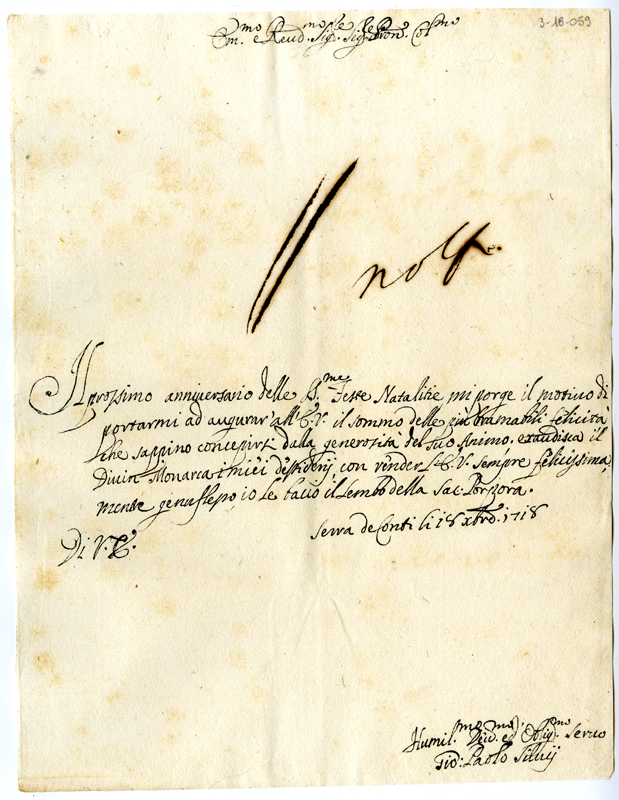 3-18-059
Em.mo e Reud.mo Sig.re Sig.re Pron. Col.mo
Il prossimo anniuersario delle S.me Feste Natalitie mi porge il motiuo di
portarmi ad augurar' all'E.V. il sommo delle più bramabili felicità
che sappino concepirsi dalla generosità del suo Animo. exaudisca il
Diuin Monarca i miei desiderij con render L'E.V. sempre felicissima,
mente genuflesso io le bacio il Lembo della Sac. Porpora.
Serra de Conti li 18 xbre. 1718
Di V.E.
Humil.mo Deu.mo ed Oblig.mo Seruo
Gio: Paolo Siluij